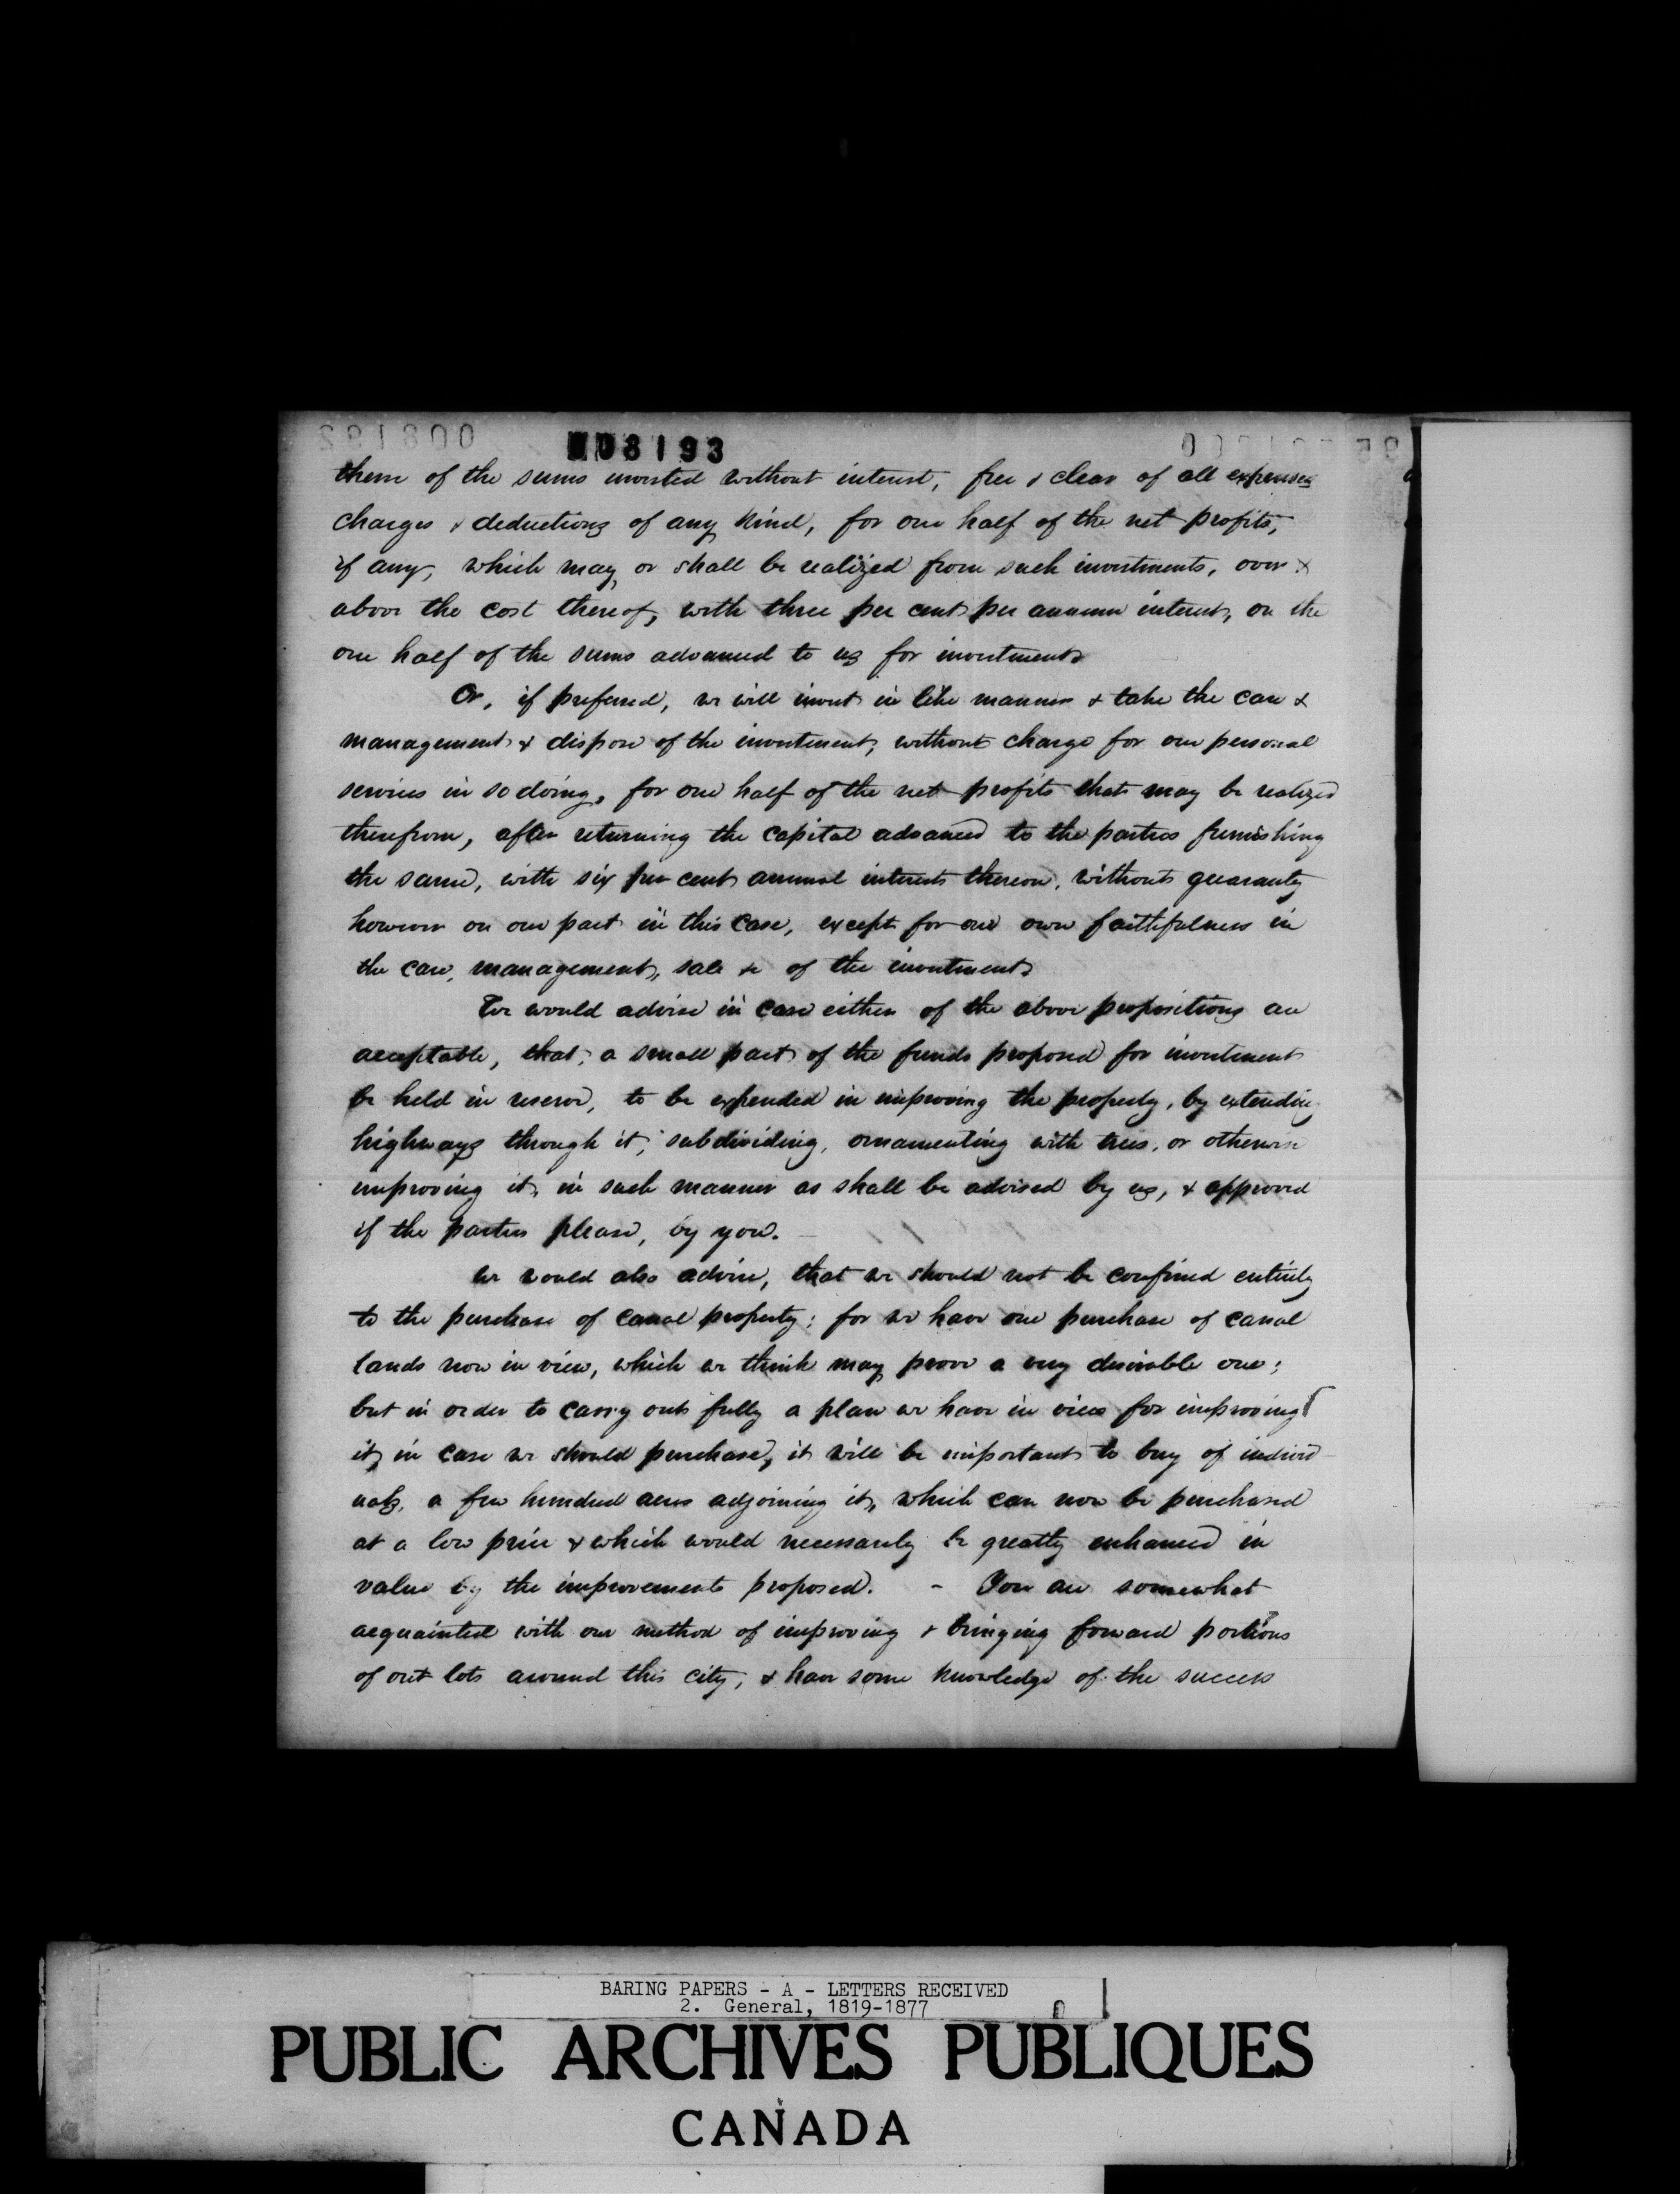 008193
them of the sums invested without interest, free & clear of all expenses
charges & deductions of any kind, for one half of the net profits,
if any, which may or shall be realized from such investments, over &
above the cost thereof, with three per cent per annum interest, on the
one half of the sums advanced to us for investment.
Or, if preferred, we will invest in like manner & take the care &
management & dispose of the investment, without charge for our personal
services in so doing, for one half of the net profits that may be realized
therefrom, after returning the capital advanced to the parties furnishing
the same, with six per cent annual interest thereon, without guaranty
however on our part in this case, except for our own faithfulness in
the care, management, sale &c of the investment.
We would advise in case either of the above propositions are
acceptable, that, a small part of the funds proposed for investment
be held in reserve, to be expended in improving the property, by extending
highways through it, subdividing, ornamenting with trees, or otherwise
improving it, in such manner as shall be advised by us, & approved
if the parties please, by you.
We would also advise, that we should not be confined entirely
to the purchase of canal property; for we have one purchase of canal
lands now in view, which we think may prove a very desirable one;
but in order to carry out fully a plan we have in view for improving
it, in case we should purchase, it will be important to buy of individ-
uals, a few hundred acres adjoining it, which can now be purchased
at a low price & which would necessarily be greatly enhanced in
value by the improvements proposed. - You are somewhat
acquainted with our method of improving & bringing forward portions
of out lots around this city, & have some knowledge of the success
BARING PAPERS - A - LETTERS RECEIVED
2. General, 1819-1877
PUBLIC ARCHIVES PUBLIQUES
CANADA